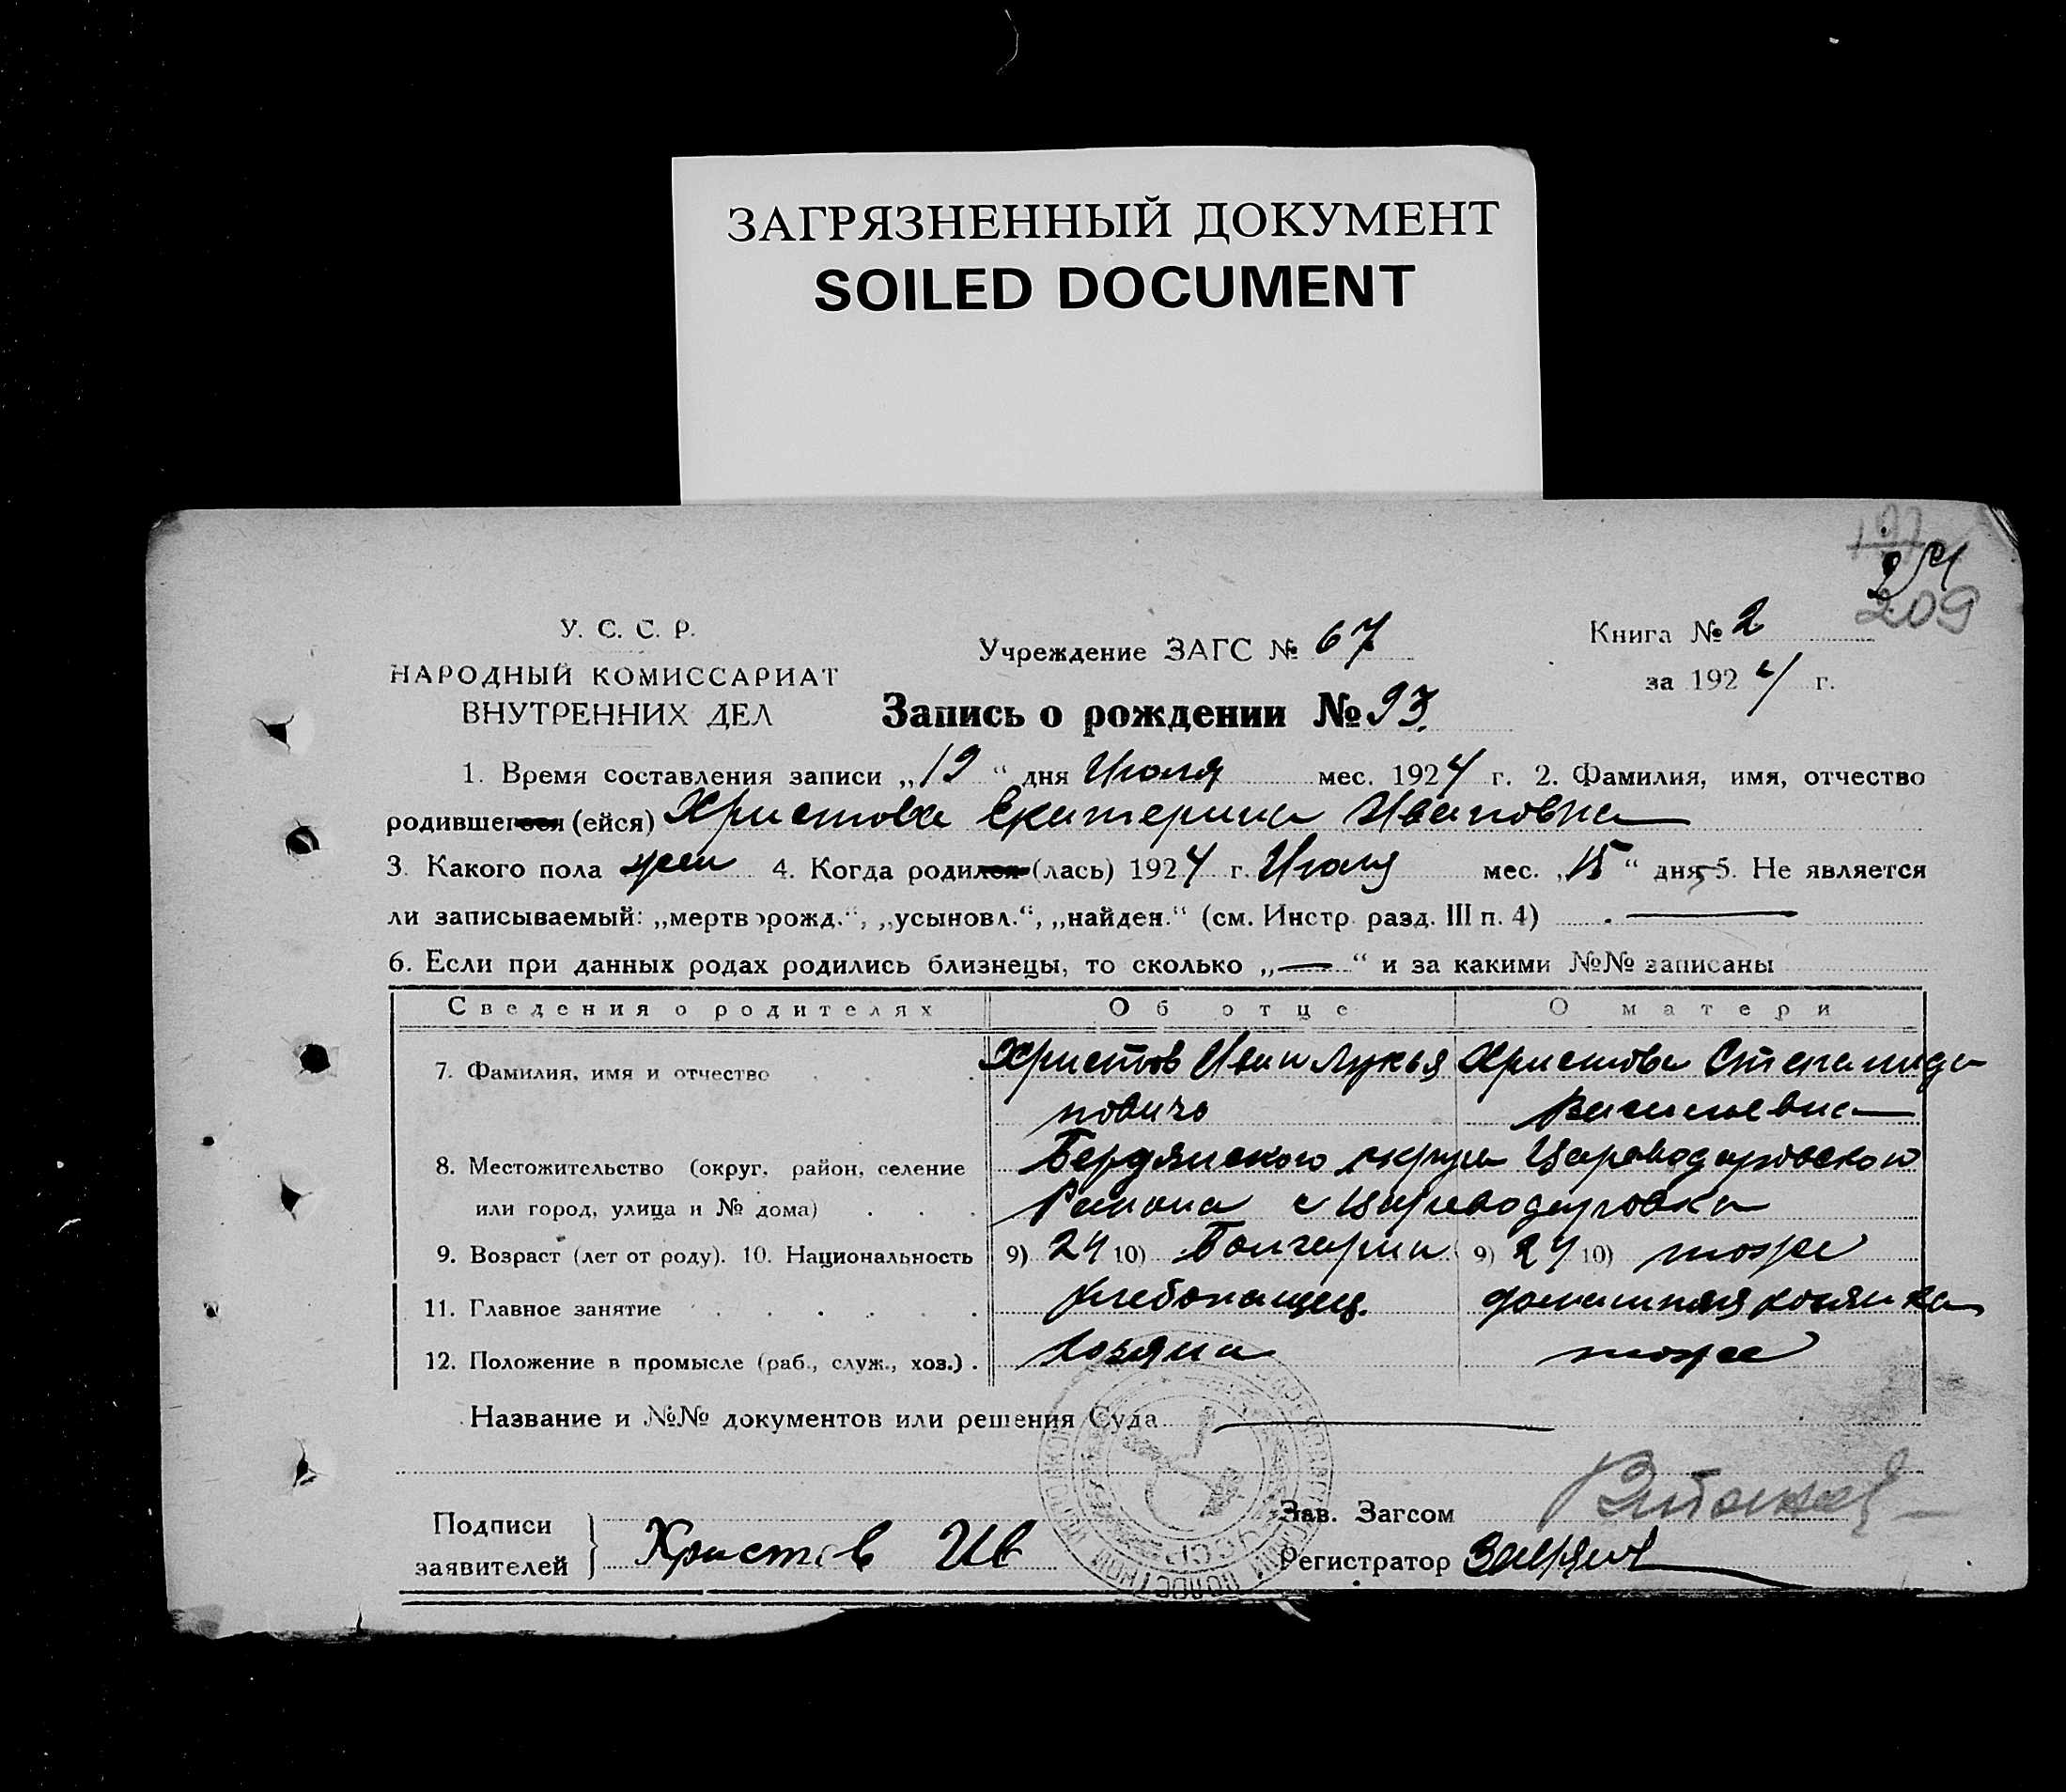 ЗАГРЯЗНЕННЫЙ ДОКУМЕНТ
SOILED DOCUMENT
209
У. С. С. Р.
НАРОДНЫЙ КОМИССАРИАТ
ВНУТРЕННИХ ДЕЛ
Учреждение ЗАГС № 67
Книга № 2
за 1924 г.
Запись о рождении № 93.
1. Время составления записи „19“ дня Июля мес. 1924 г. 2. Фамилия, имя, отчество
родившегося (ейся) Христова Екатерина Ивановна
3. Какого пола жен 4. Когда родился (лась) 1924 г. Июля мес. „15“ дня 5. Не является
ли записываемый: „мерт­ворожд.“, „усыновл.“, „найден.“ (см. Инстр. разд. III п. 4)
6. Если при данных родах родились близнецы, то сколько „—“ и за какими №№ записаны
Сведения о родителях Об отце О матери
7. Фамилия, имя и отчество Христов Иван Лукья Христова Степанида
новичъ Васильевна
8. Местожительство (округ, район, селение Бердянского округа Цареводаровского
или город, улица и № дома) Района с Цареводаровка
9. Возраст (лет от роду). 10. Национальность 9) 24 10) Болгарин 9) 24 10) тоже
11. Главное занятие Хлебопашец. домашняя хозяйка
12. Положение в промысле (раб., служ., хоз.) Хозяин тоже
Название и №№ документов или решения Суда
Подписи
заявителей } Христов Ив
Зав. Загсом
Регистратор